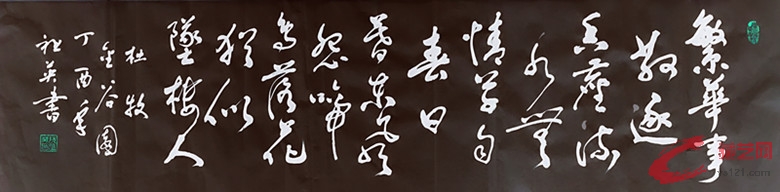 繁華事
散逐
香塵流
水無
情草自
春日
暮東風
怨啼
鳥落花
猶似
墜樓人
杜牧
金谷園
丁酉年
英書